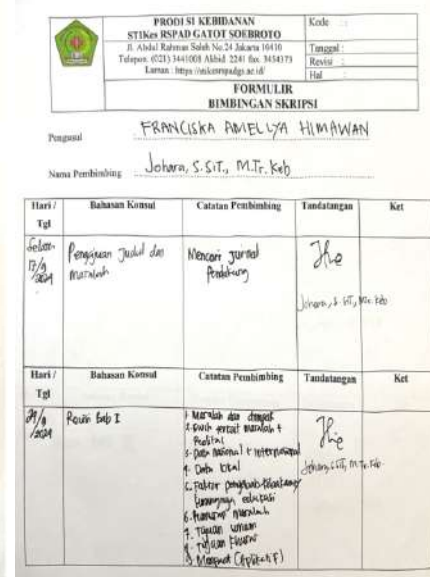 PRODI S1 KEBIDANAN
STIKes RSPAD GATOT SOEBROTO
Jl. Abdul Rahman Saleh No.24 Jakarta 10410
Telepon: (021) 3441008 Akbid 2241 fax. 3454373
Laman : https://stikesrspadgs.ac.id/
Kode :
Tanggal :
Revisi :
Hal
FORMULIR
BIMBINGAN SKRIPSI
Pengusul FRANCISKA AMELLYA HIMAWAN
Nama Pembimbing Johara, S.SiT., M.Tr.Keb
Hari / Tgl Bahasan Konsul Catatan Pembimbing Tandatangan Ket
Selasa 17/9 2024
Pengajuan Judul dan
masalah
Mencari jurnal
Pendukung
Johara, S.SiT., M.Tr.Keb
Hari / Tgl Bahasan Konsul Catatan Pembimbing Tandatangan Ket
/9 /2024
Revisi Bab I
1. Masalah dan dampak
2. terkait masalah +
3. Data Nasional + Internasional
4. Data lokal
5. Faktor
kurangnya edukasi
6. masalah
7. Tujuan umum
8. Tujuan khusus
9. Manfaat (Aplikatif)
Johara, S.SiT, M.Tr.Keb